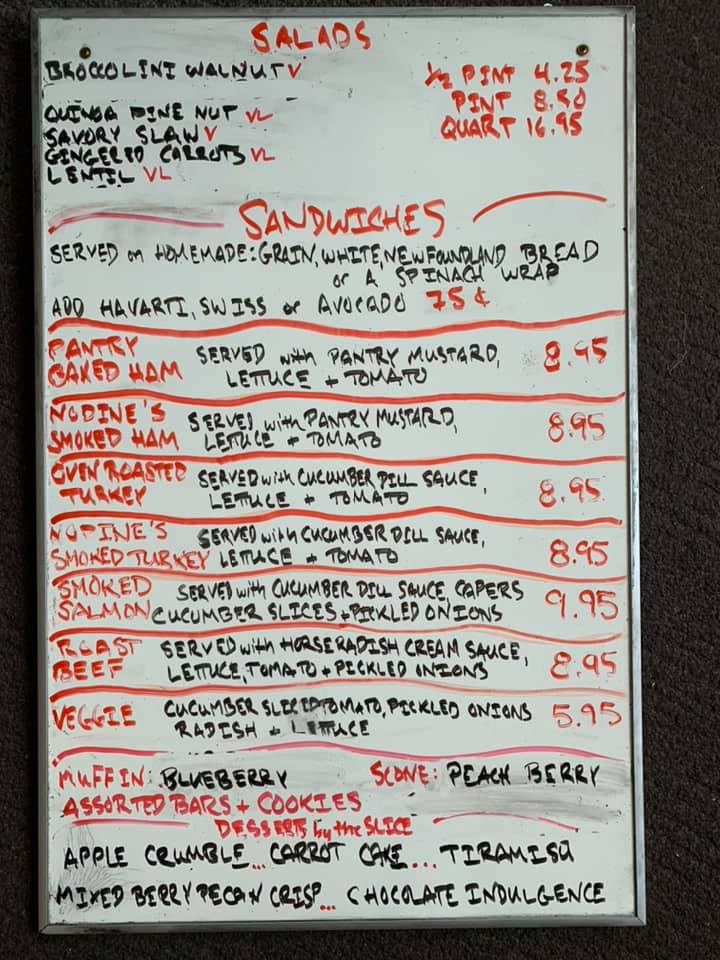 SALADS
BROCCOLINI WALNUT V
1/2 PINT 4.25
PINT 8.50
QUART 16.95
QUINOA PINE NUT VL
SAVORY SLAW V
GINGERED CARROTS VL
LENTIL VL
SANDWICHES
SERVED on HOMEMADE: GRAIN, WHITE, NEWFOUNDLAND BREAD
or A SPINACH WRAP
ADD HAVARTI, SWISS or AVOCADO 75¢
PANTRY
BAKED HAM
SERVED with PANTRY MUSTARD,
LETTUCE + TOMATO
8.95
NODINE'S
SMOKED HAM
SERVED with PANTRY MUSTARD,
LETTUCE + TOMATO
8.95
OVEN ROASTED
TURKEY
SERVED with CUCUMBER DILL SAUCE,
LETTUCE + TOMATO
8.95
NODINE'S
SMOKED TURKEY
SERVED with CUCUMBER DILL SAUCE,
LETTUCE + TOMATO
8.95
SMOKED
SALMON
SERVED with CUCUMBER DILL SAUCE, CAPERS
CUCUMBER SLICES + PICKLED ONIONS
9.95
ROAST
BEEF
SERVED with HORSERADISH CREAM SAUCE,
LETTUCE, TOMATO + PICKLED ONIONS
8.95
VEGGIE
CUCUMBER SLICED TOMATO, PICKLED ONIONS
RADISH + LETTUCE
5.95
MUFFIN: BLUEBERRY
SCONE: PEACH BERRY
ASSORTED BARS + COOKIES
DESSERTS by the SLICE
APPLE CRUMBLE... CARROT CAKE... TIRAMISU
MIXED BERRY PECAN CRISP... CHOCOLATE INDULGENCE